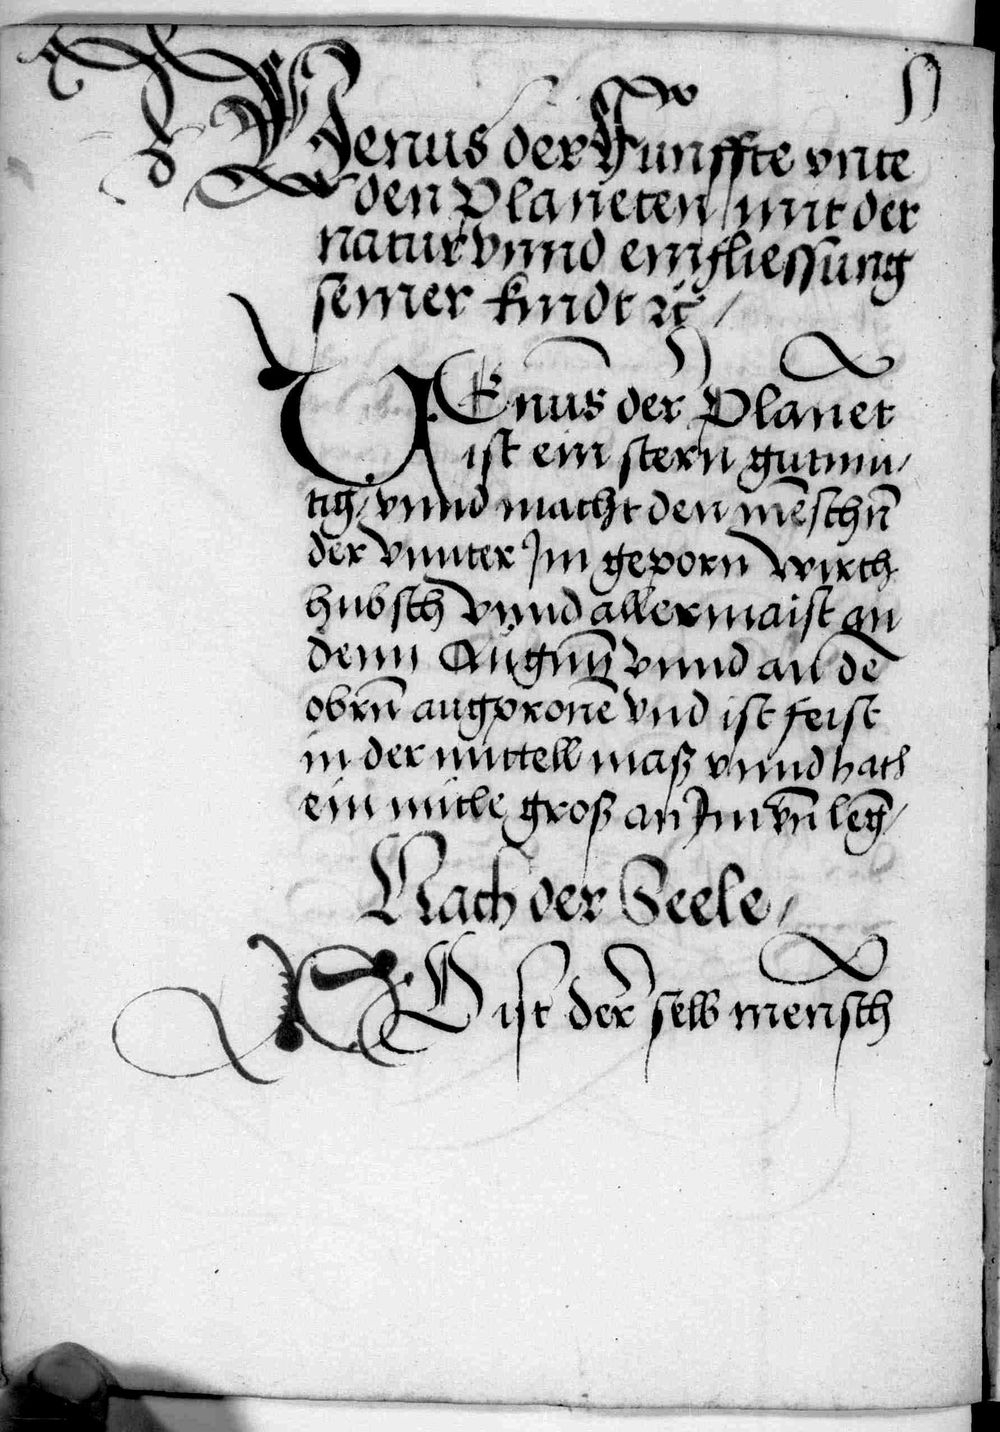 Venus der Funffte vnte
den Planeten / mit der
natur vnnd einfliessung
seiner kindt ꝛc /
VEnus der Planet
ist ein stern gutmu /
tig / vnnd macht den mēschn̄
der vnnter Jm geporn wirth
hubsch vnnd allermaist an
denn Augnn vnnd an dē
obrn̄ augpronē vnd ist feist
in der mittell maß vnnd hath
ein mitle groß an Jm vn̄ leḡ /
Nach der Seele /
SO ist der selb mensch